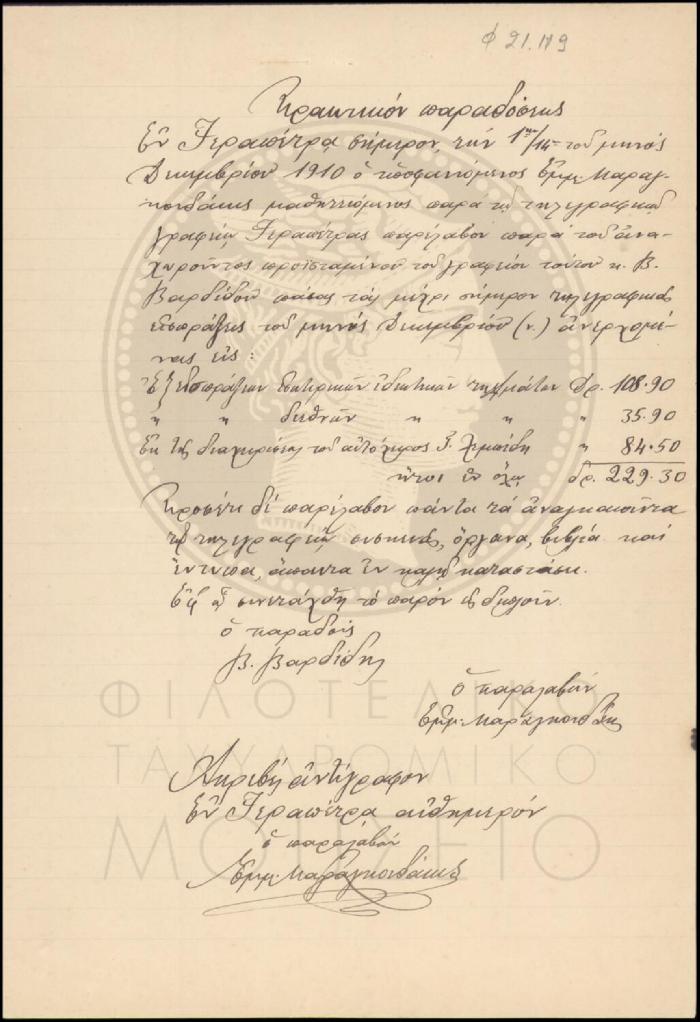 Φ 21.119
Πρακτικόν παραδόσεως
Ἐν Ἱεραπέτρᾳ σήμερον, τὴν 1ην/14ην τοῦ μηνός
Δεκεμβρίου 1910 ὁ ὑποφαινόμενος Ἐμμ. Μαραγ-
κουδάκης μαθητευόμενος παρὰ τῷ τηλεγραφικῷ
γραφείῳ Ἱεραπέτρας παρέλαβον παρὰ τοῦ ἀνα-
χωροῦντος προϊσταμένου τοῦ γραφείου τούτου κ. Β.
Βαρδίδου πάσας τὰς μέχρι σήμερον τηλεγραφικάς
εἰσπράξεις τοῦ μηνός Δεκεμβρίου (ν.) ἀνερχομέ-
νας εἰς:
Ἐξ εἰσπράξεων ἐσωτερικῶν ἰδιωτικῶν τηλ/μάτων Δρ. 108.90
" " διεθνῶν " " " 35.90
Ἐκ τῆς διαχειρίσεως τοῦ αὐτόχειρος 84.50
ἤτοι ἐν ὅλῳ δρ. 229.30
Προσέτι δὲ παρέλαβον πάντα τὰ ἀναγκαιοῦντα
τηλεγραφικῇ συσκευάς, ὄργανα, βιβλία καί
ἔντυπα, ἅπαντα ἐν καλῇ καταστάσει.
Ἐφ' ᾧ συνετάχθη τὸ παρόν εἰς διπλοῦν.
ὁ παραδούς
Β. Βαρδίδης
ὁ παραλαβών
Ἐμμ. Μαραγκουδάκης
Ἀκριβές ἀντίγραφον
Ἐν Ἱεραπέτρᾳ αὐθημερόν
ὁ παραλαβών
Ἐμμ. Μαραγκουδάκης
ΦΙΛΟΤΕΛΙΚΟ
ΤΑΧΥΔΡΟΜΙΚΟ
ΜΟΥΣΕΙΟ